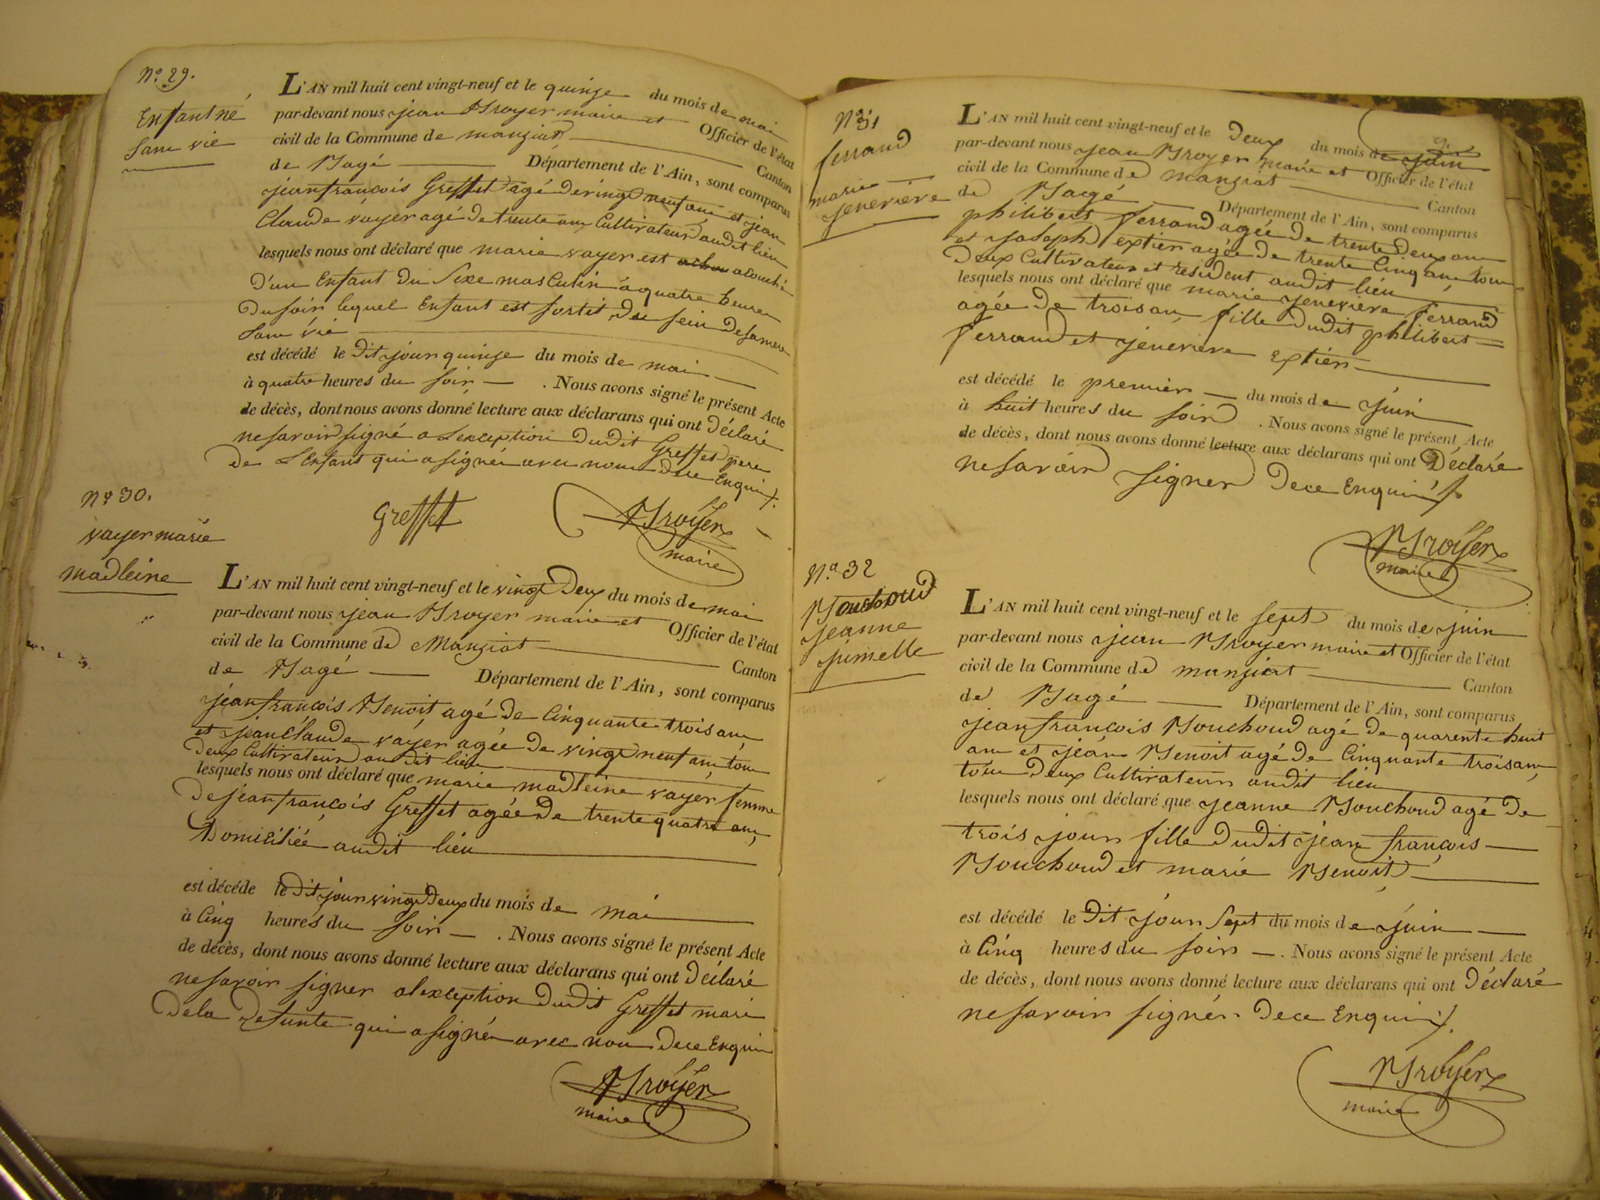 N° 29.
Enfant né
sans vie
L'AN mil huit cent vingt-neuf et le quinze du mois de mai
par-devant nous jean Broyer maire et Officier de l'état
civil de la Commune de manziat Canton
de Bagé Département de l'Ain, sont comparus
jean françois Greffet agé de vingt neuf ans et jean
Claude vayer agé de trente ans Cultivateurs audit lieu
lesquels nous ont déclaré que marie vayer est acouché
d'un Enfant du sexe masculin à quatre heures
du soir lequel Enfant est sortit du sein de sa mere
sans vie
est décédé le dit jour quinze du mois de mai
à quatre heures du soir . Nous avons signé le présent Acte
de décès, dont nous avons donné lecture aux déclarans qui ont déclaré
ne savoir signé a Lexception dudit Greffet pere
de L'Enfant qui a signé avec nous de ce Enquis
Greffet Broyer
maire
N° 30.
vayer marie
madleine
L'AN mil huit cent vingt-neuf et le vingt deux du mois de mai
par-devant nous jean Broyer maire et Officier de l'état
civil de la Commune de Manziat Canton
de Bagé Département de l'Ain, sont comparus
jean françois Benoit agé de Cinquante trois ans
et jean Claude vayer agée de vingt neuf ans tous
deux Cultivateurs audit lieu
lesquels nous ont déclaré que marie madleine vayer femme
de jean françois Greffet agée de trente quatre ans
Domiciliée audit lieu
est décédé le dit jour vingt deux du mois de mai
à Cinq heures du soir . Nous avons signé le présent Acte
de décès, dont nous avons donné lecture aux déclarans qui ont déclaré
ne savoir signer alexception dudit Greffet mari
de la defunte qui a signé avec nous de ce Enquis
Broyer
maire
N° 31
ferrand
marie
jenevieve
L'AN mil huit cent vingt-neuf et le deux du mois de juin
par-devant nous jean Broyer maire et Officier de l'état
civil de la Commune de manziat Canton
de Bagé Département de l'Ain, sont comparus
philibert ferrand agée de trente deux ans
et joseph extier agée de trente Cinq ans tous
deux Cultivateurs et resident audit lieu
lesquels nous ont déclaré que marie jenevieve ferrand
agée de trois ans fille dudit philibert
ferrand et jenevieve extier
est décédé le premier du mois de juin
à huit heures du soir . Nous avons signé le présent Acte
de décès, dont nous avons donné lecture aux déclarans qui ont Déclaré
ne savoir signer de ce Enquis
Broyer
maire
N° 32
Bouchoud
jeanne
jumelle
L'AN mil huit cent vingt-neuf et le sept du mois de juin
par-devant nous jean Broyer maire et Officier de l'état
civil de la Commune de manziat Canton
de Bagé Département de l'Ain, sont comparus
jean françois Bouchoud agé de quarente huit
ans et jean Benoit agé de Cinquante trois ans
tous deux Cultivateurs audit lieu
lesquels nous ont déclaré que jeanne Bouchoud agé de
trois jours fille dudit jean françois
Bouchoud et marie Benoit
est décédé le dit jour sept du mois de juin
à Cinq heures du soir . Nous avons signé le présent Acte
de décès, dont nous avons donné lecture aux déclarans qui ont déclaré
ne savoir signér de ce Enquis
Broyer
maire